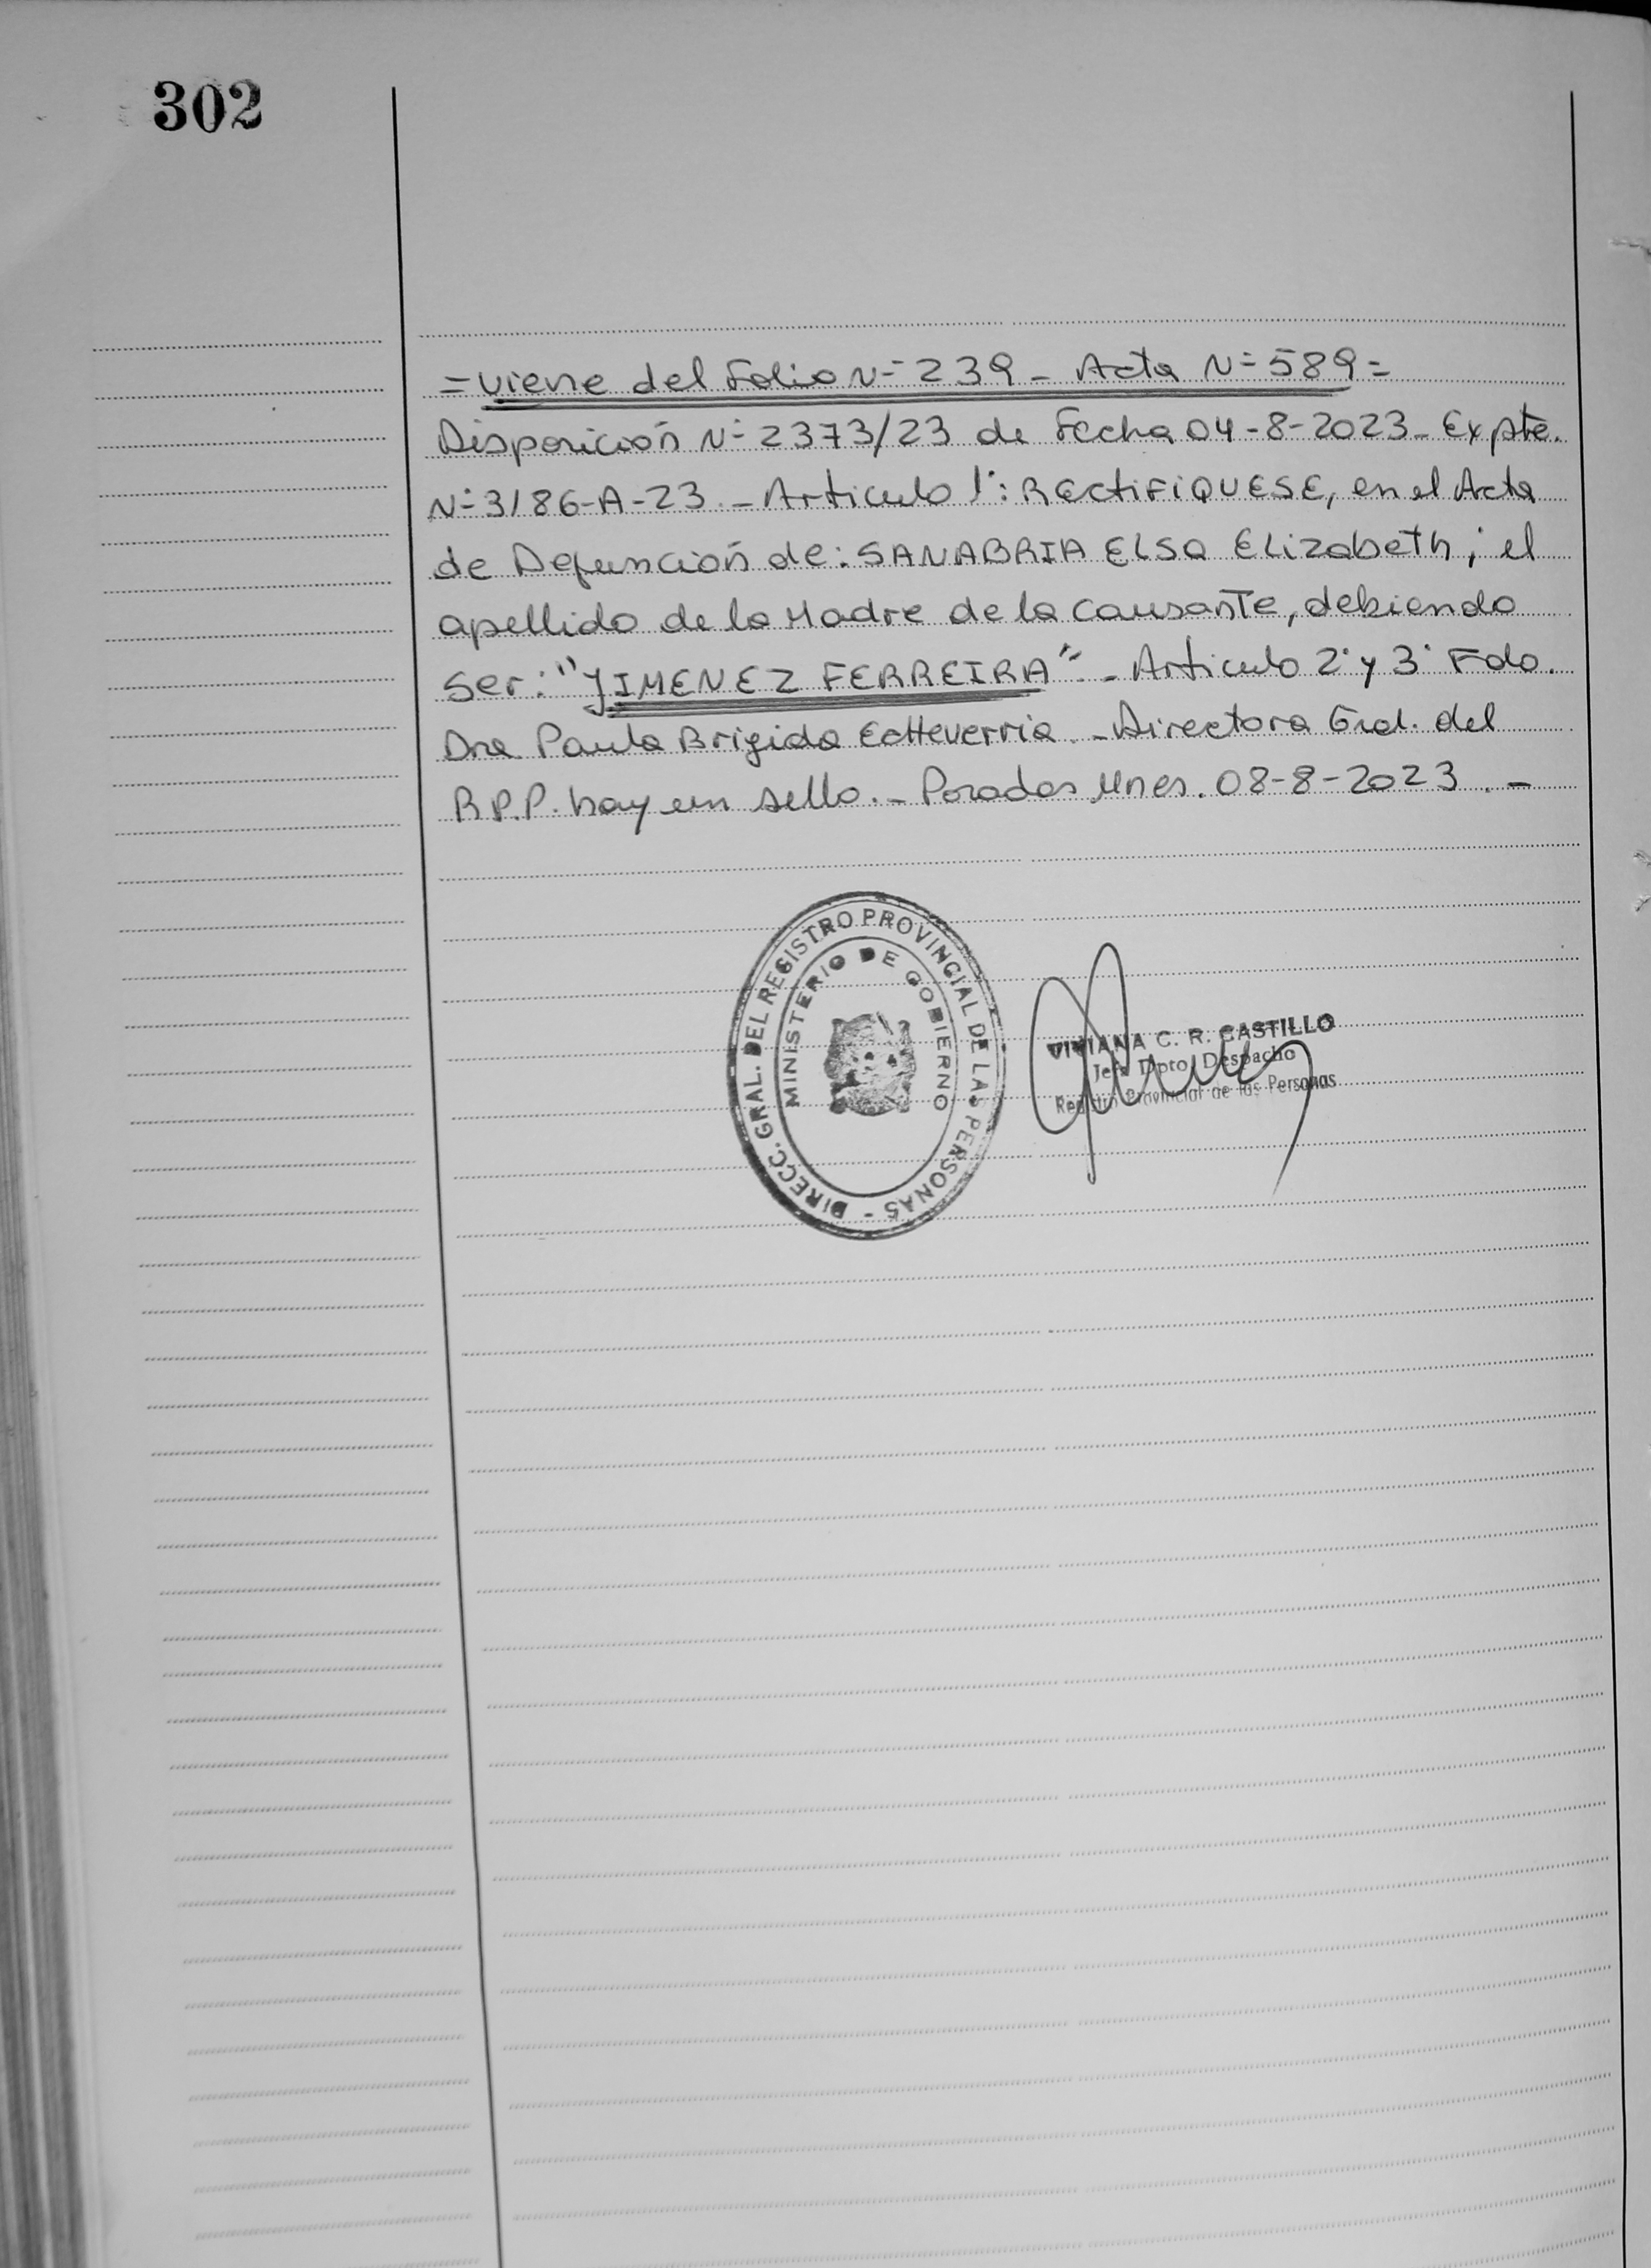 302
= viene del Folio N= 239 - Acta N= 589 =
Disposición N= 2373/23 de Fecha 04-8-2023 - Expte.
N= 3186-A-23. - Articulo 1°: RECTIFIQUESE, en el Acta
de Defunción de: SANABRIA ELSA ELizabeth; el
apellido de la Madre de la causante, debiendo
ser: "JIMENEZ FERREIRA" - Articulo 2° y 3° Fdo.
Dra Paula Brigida Echeverria - Directora Gral. del
R.P.P. hay un sello. - Posadas, Mnes. 08-8-2023. -
DIRECC. GRAL. DEL REGISTRO PROVINCIAL DE LAS PERSONAS -
MINISTERIO DE GOBIERNO
VIVIANA C. R. CASTILLO
Jefa Dpto Despacho
Registro Provincial de las Personas